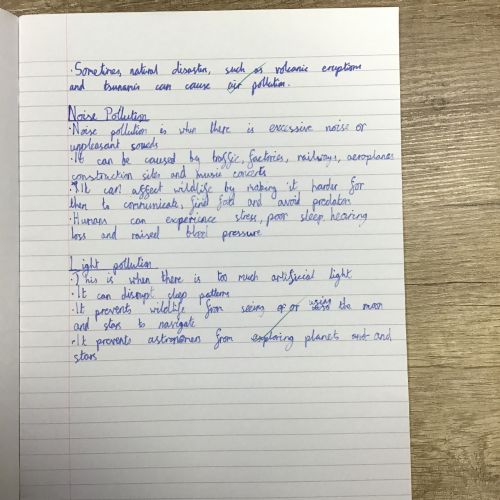 · Sometimes, natural disasters, such as volcanic eruptions
and tsunamis can cause air pollution.
Noise Pollution
· Noise pollution is when there is excessive noise or
unpleasant sounds
· It can be caused by traffic, factories, railways, aeroplanes
construction sites and music concerts
· It can affect wildlife by making it harder for
them to communicate, find food and avoid predators
· Humans can experience stress, poor sleep, hearing
loss and raised blood pressure
Light pollution
· This is when there is too much artificial light
· It can disrupt sleep patterns
· It prevents wildlife from seeing or using the moon
and stars to navigate
· It prevents astronomers from exploring planets and
stars